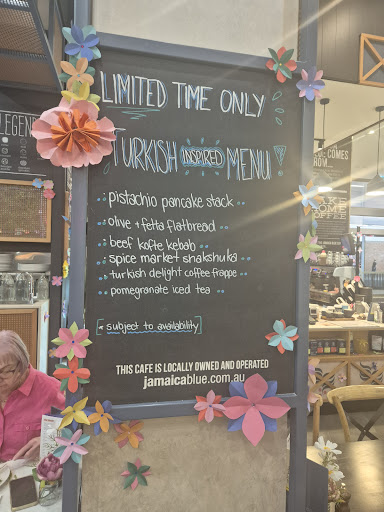 LIMITED TIME ONLY
TURKISH INSPIRED MENU!
pistachio pancake stack
olive + fetta flatbread
beef kofte kebab
spice market shakshuka
turkish delight coffee frappe
pomegranate iced tea
* subject to availability
THIS CAFE IS LOCALLY OWNED AND OPERATED
jamaicablue.com.au
LEGEN
COMES